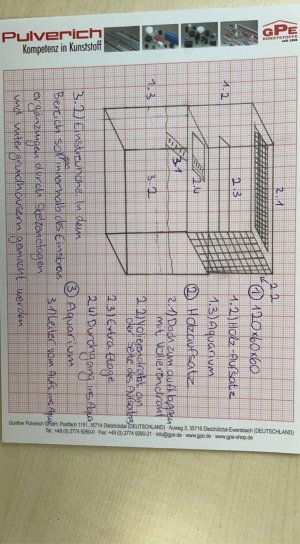 Pulverich
Kompetenz in Kunststoff
GPE
KUNSTSTOFFE
① 120x60x60
1.2) Holz-Aufsatz
1.3) Aquarium
② Holzaufsatz
2.1) Dach zum aufklappen
mit Volierendraht
2.2) Volierendraht an
der Seite des Aufsatzes
2.3) Extra Etage
2.4) Durchgang ins Aqua
③ Aquarium
3.1) Leiter vom Aufs. ins Aqua
3.2) Einstreuhöhe In dem
Bereich soll innerhalb des Einstreus
ergänzungen durch Stelzenetagen
und untergrundhäusern gemacht werden
1.2
1.3
2.1
2.2
2.3
2.4
3.1
3.2
Günther Pulverich GmbH, Postfach 1151, 35714 Dietzhölztal (DEUTSCHLAND) · Auweg 3, 35716 Dietzhölztal-Ewersbach (DEUTSCHLAND)
Tel.: +49 (0) 2774 9260-0 · Fax: +49 (0) 2774 9260-21 · info@gpe.de · www.gpe.de · www.gpe-shop.de